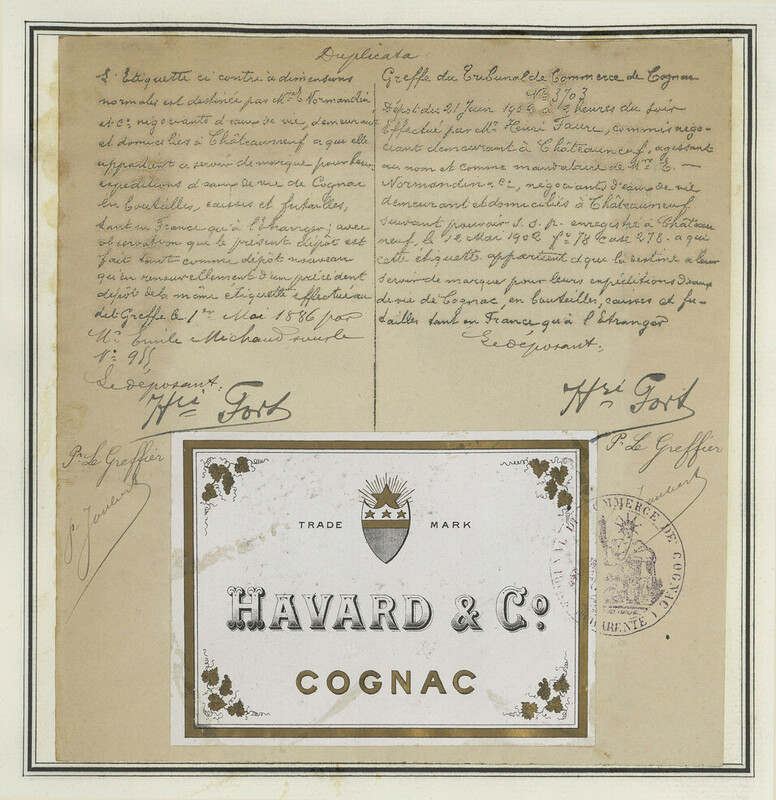 Duplicata
L'Etiquette ci contre à dimensions
normales est destinée par Mrs E Normandin
& Co négociants d'eaux de vie, demeurant
et domiciliés à Châteauneuf a qui elle
appartient a servir de marque pour leurs
expéditions d'eaux de vie de Cognac
en bouteilles, caisses et futailles,
tant en France qu'à l'Etranger; avec
observation que le présent dépôt est
fait tant comme dépôt nouveau
qu'en renouvellement d'un précédent
dépôt de la même étiquette effectué au
dit Greffe le 1er Mai 1886 par
Mr Emile Michaud sous le
No 955
Le déposant,
Hri Fort
Pr Le Greffier
Greffe du Tribunal de Commerce de Cognac
No 3703
Dépôt du 21 Juin 1902 à 2 heures du soir
Effectué par Mr Henri Faure, commis négo-
ciant demeurant à Châteauneuf, agissant
au nom et comme mandataire de Mrs E.
Normandin & Co, négociants d'eaux de vie
demeurant et domiciliés à Châteauneuf
suivant pouvoir s.s.p. enregistré à Château
neuf, le 12 Mai 1902 fo 78 Case 278. a qui
cette étiquette appartient et qui la destine a leur
servir de marque pour leurs expéditions d'eaux
de vie de Cognac, en bouteilles, caisses et fu-
tailles tant en France qu'à l'Etranger
Le déposant.
Hri Fort
Pr Le Greffier
TRADE MARK
HAVARD & Co
COGNAC
TRIBUNAL DE COMMERCE DE COGNAC
CHARENTE